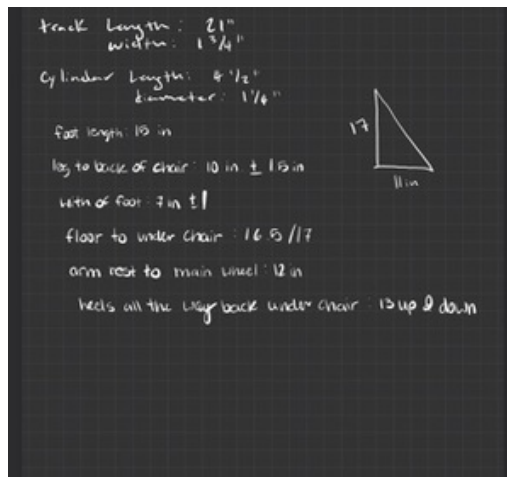 track Length: 21"
width: 1 3/4"
Cylinder Length: 4 1/2"
diameter: 1 1/4"
foot length: 15 in
leg to back of chair: 10 in ± 1.5 in
with of foot: 7 in ±1
floor to under chair: 16.5/17
arm rest to main wheel: 12 in
heels all the way back under chair: 13 up & down
17
11in